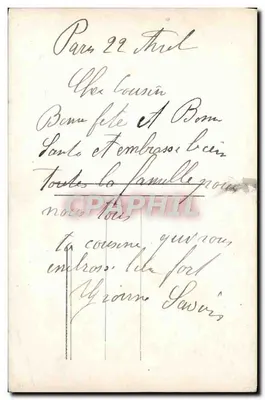 Paris 22 Avril
Cher Cousin
Bonne fête et Bonne
Santé et embrasse bien
toutes la famille pour
nous tous
CPAPHIL
ta cousine qui vous
embrasse bien fort
Yvonne